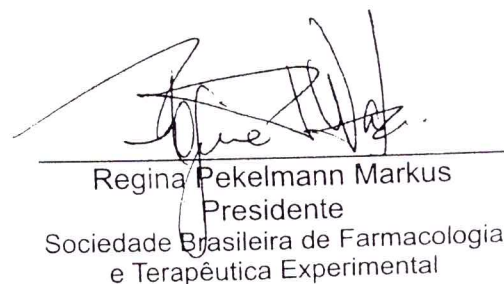 Regina Pekelmann Markus
Presidente
Sociedade Brasileira de Farmacologia
e Terapêutica Experimental